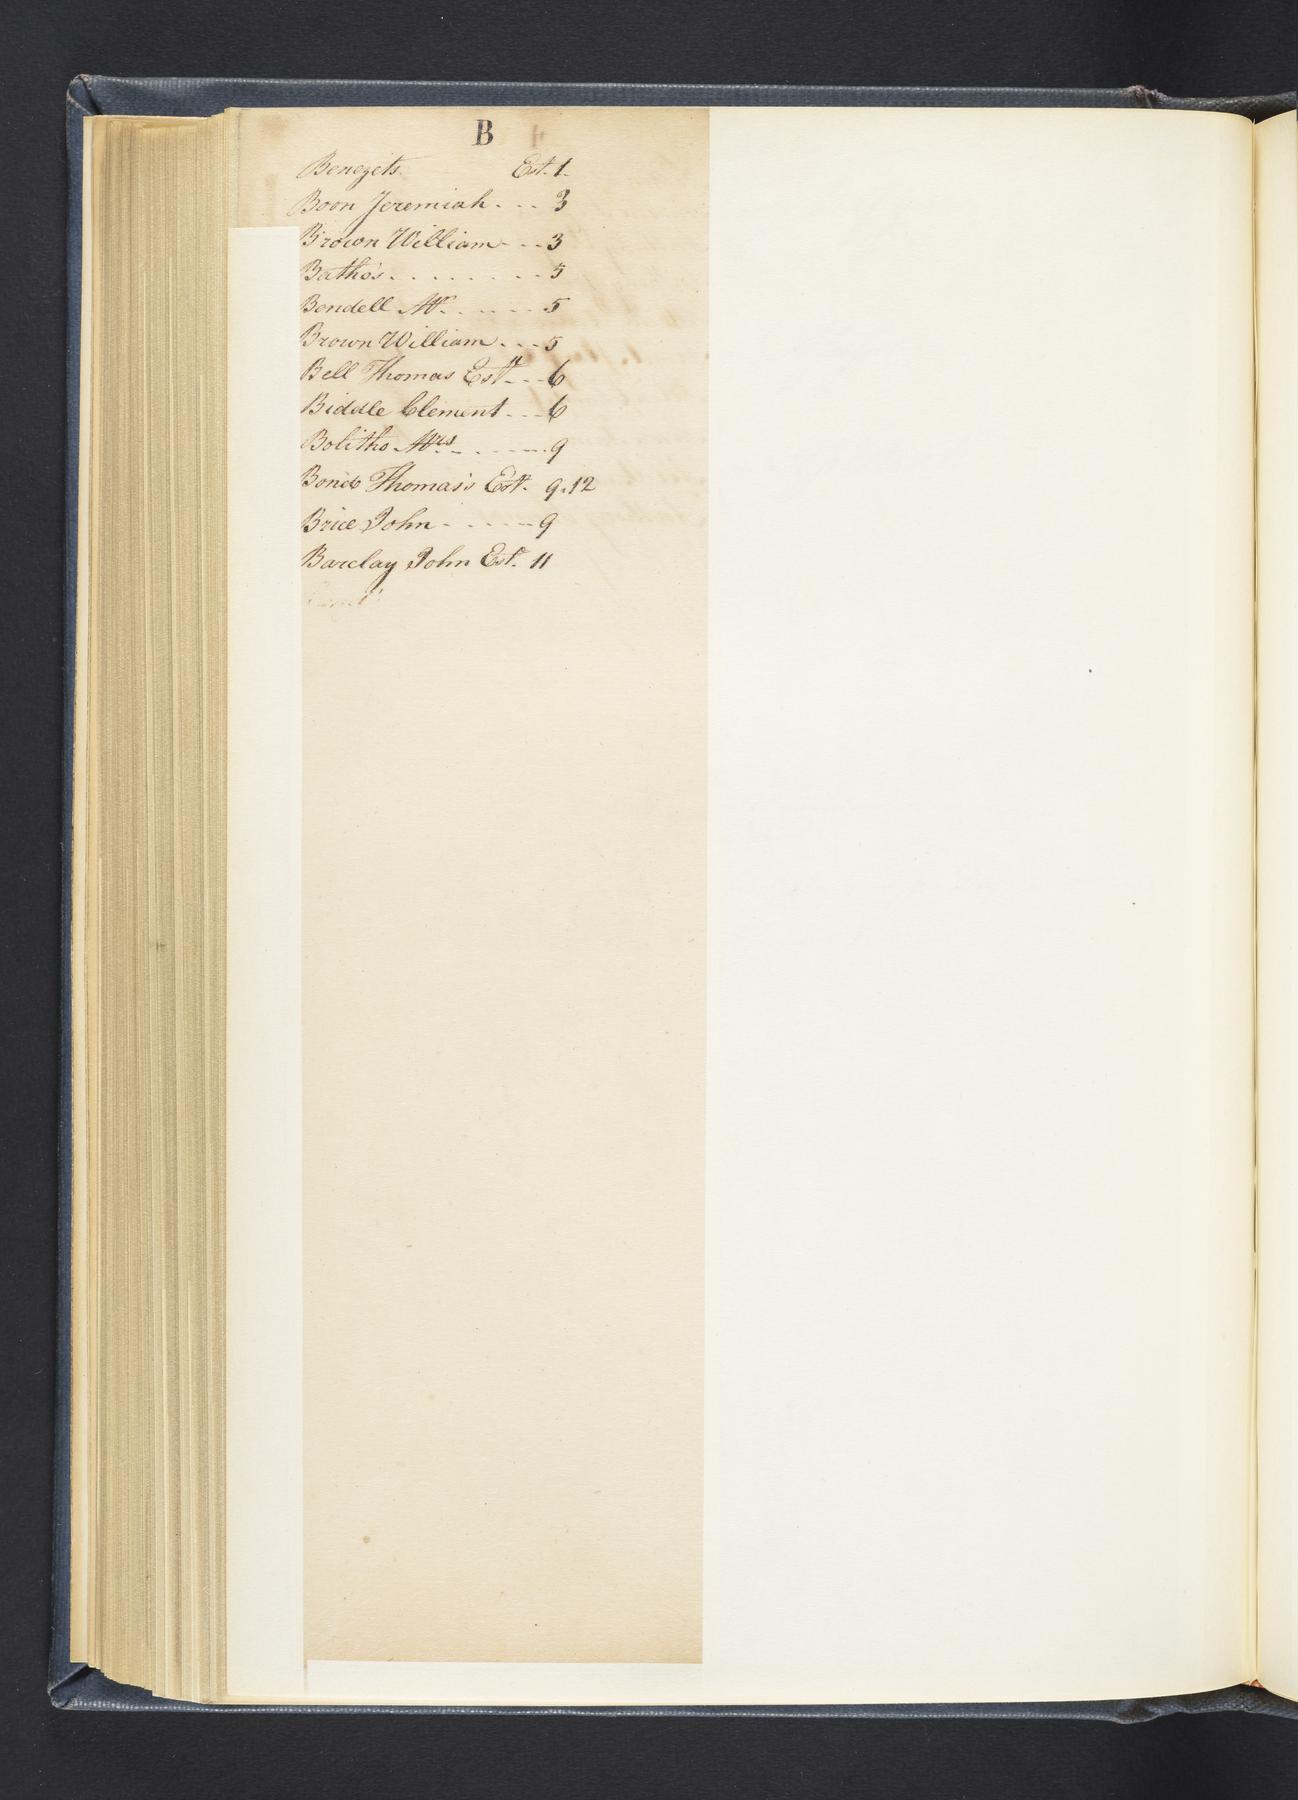 B
Benezets Est. 1.
Boon Jeremiah - - - 3
Brown William - - - 3
Batho's . . . . . - - - 5
Bendell Mr. . - - - - 5
Brown William . . - 5
Bell Thomas Estt - - - 6
Biddle Clement - - - 6
Bolitho Mrs - . - - - - . 9
Bond Thomas's Est. 9.12
Brice John - - - - - - 9
Barclay John Est. 11